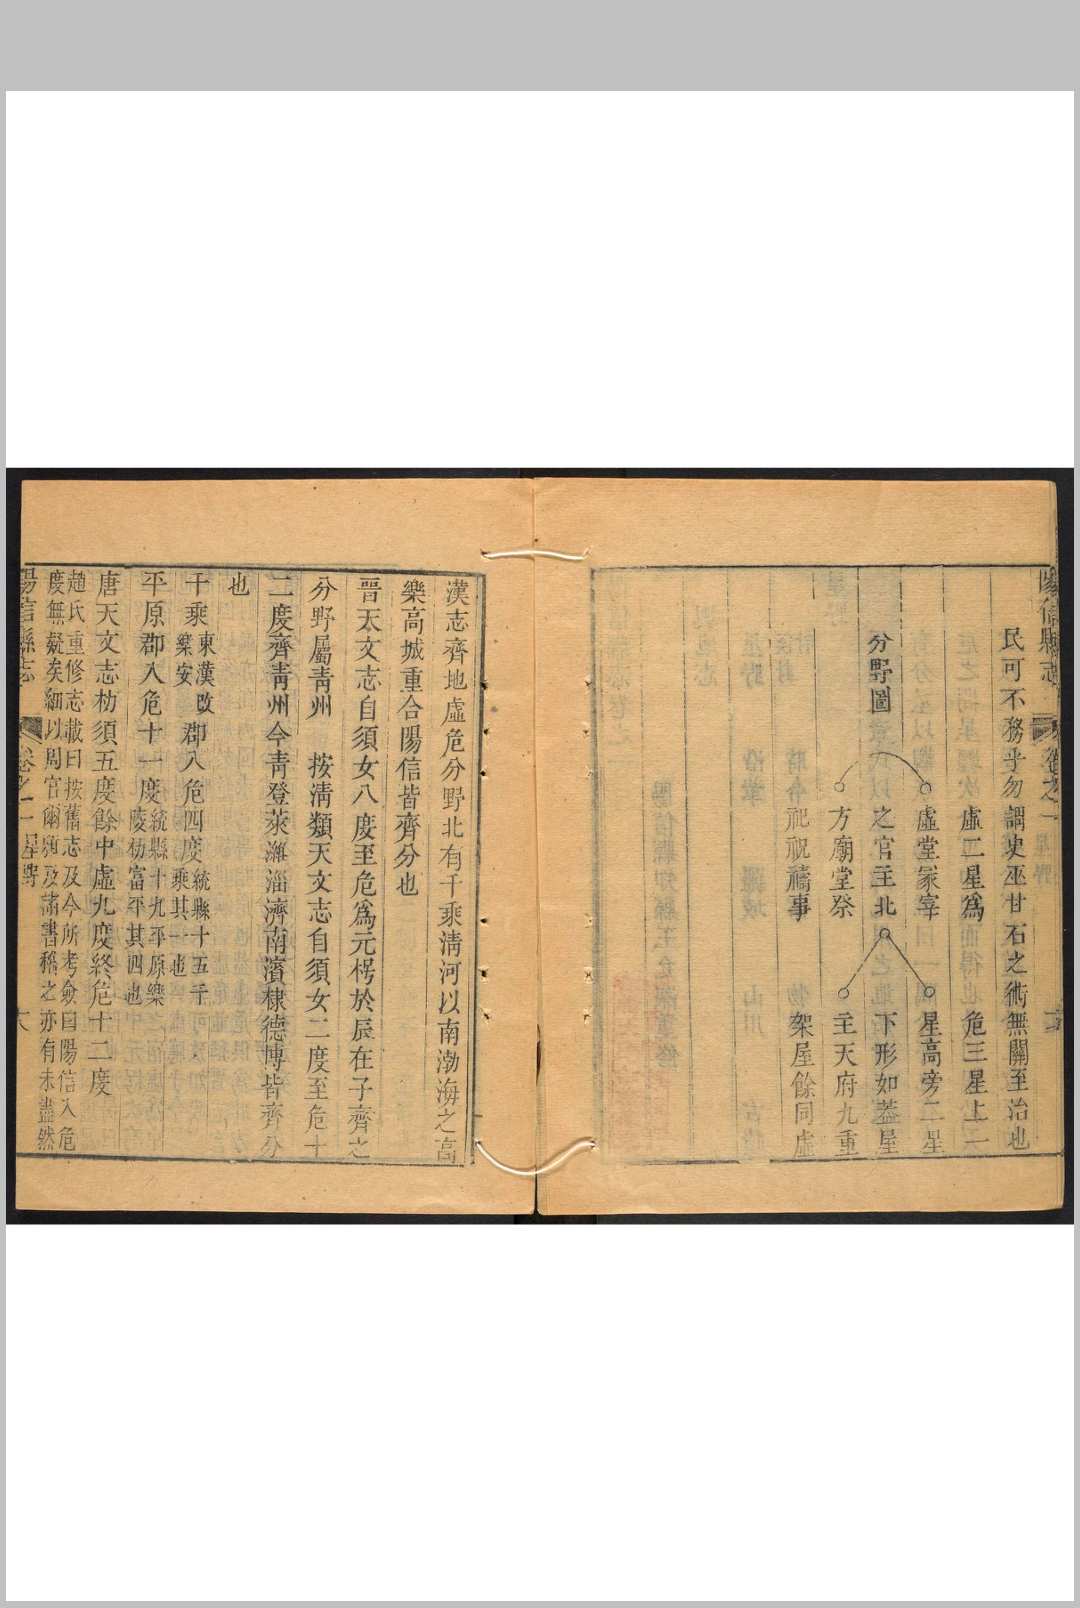 陽信縣志 卷之一 星野
民可不務乎勿謂史巫甘石之術無關至治也
虛二星爲
危三星上一
分野圖
虛堂冢宰
星高旁二星
之官主北
下形如蓋屋
方廟堂祭
主天府九重
祀祝禱事
架屋餘同虛
漢志齊地虛危分野北有千乘淸河以南渤海之高
樂高城重合陽信皆齊分也
晉天文志自須女八度至危爲元枵於辰在子齊之
分野屬靑州 按淸類天文志自須女二度至危十
二度齊靑州今靑登萊濰淄濟南濱棣德博皆齊分
也
千乘東漢改樂安郡入危四度統縣十五千乘其一也
平原郡入危十一度統縣十九平原樂陵枋富平其四也
唐天文志枋須五度餘中虛九度終危十二度
趙氏重修志載曰按舊志及今所考僉曰陽信入危
度無疑矣細以周官爾雅及諸書稱之亦有未盡然
陽信縣志 卷之一 星野